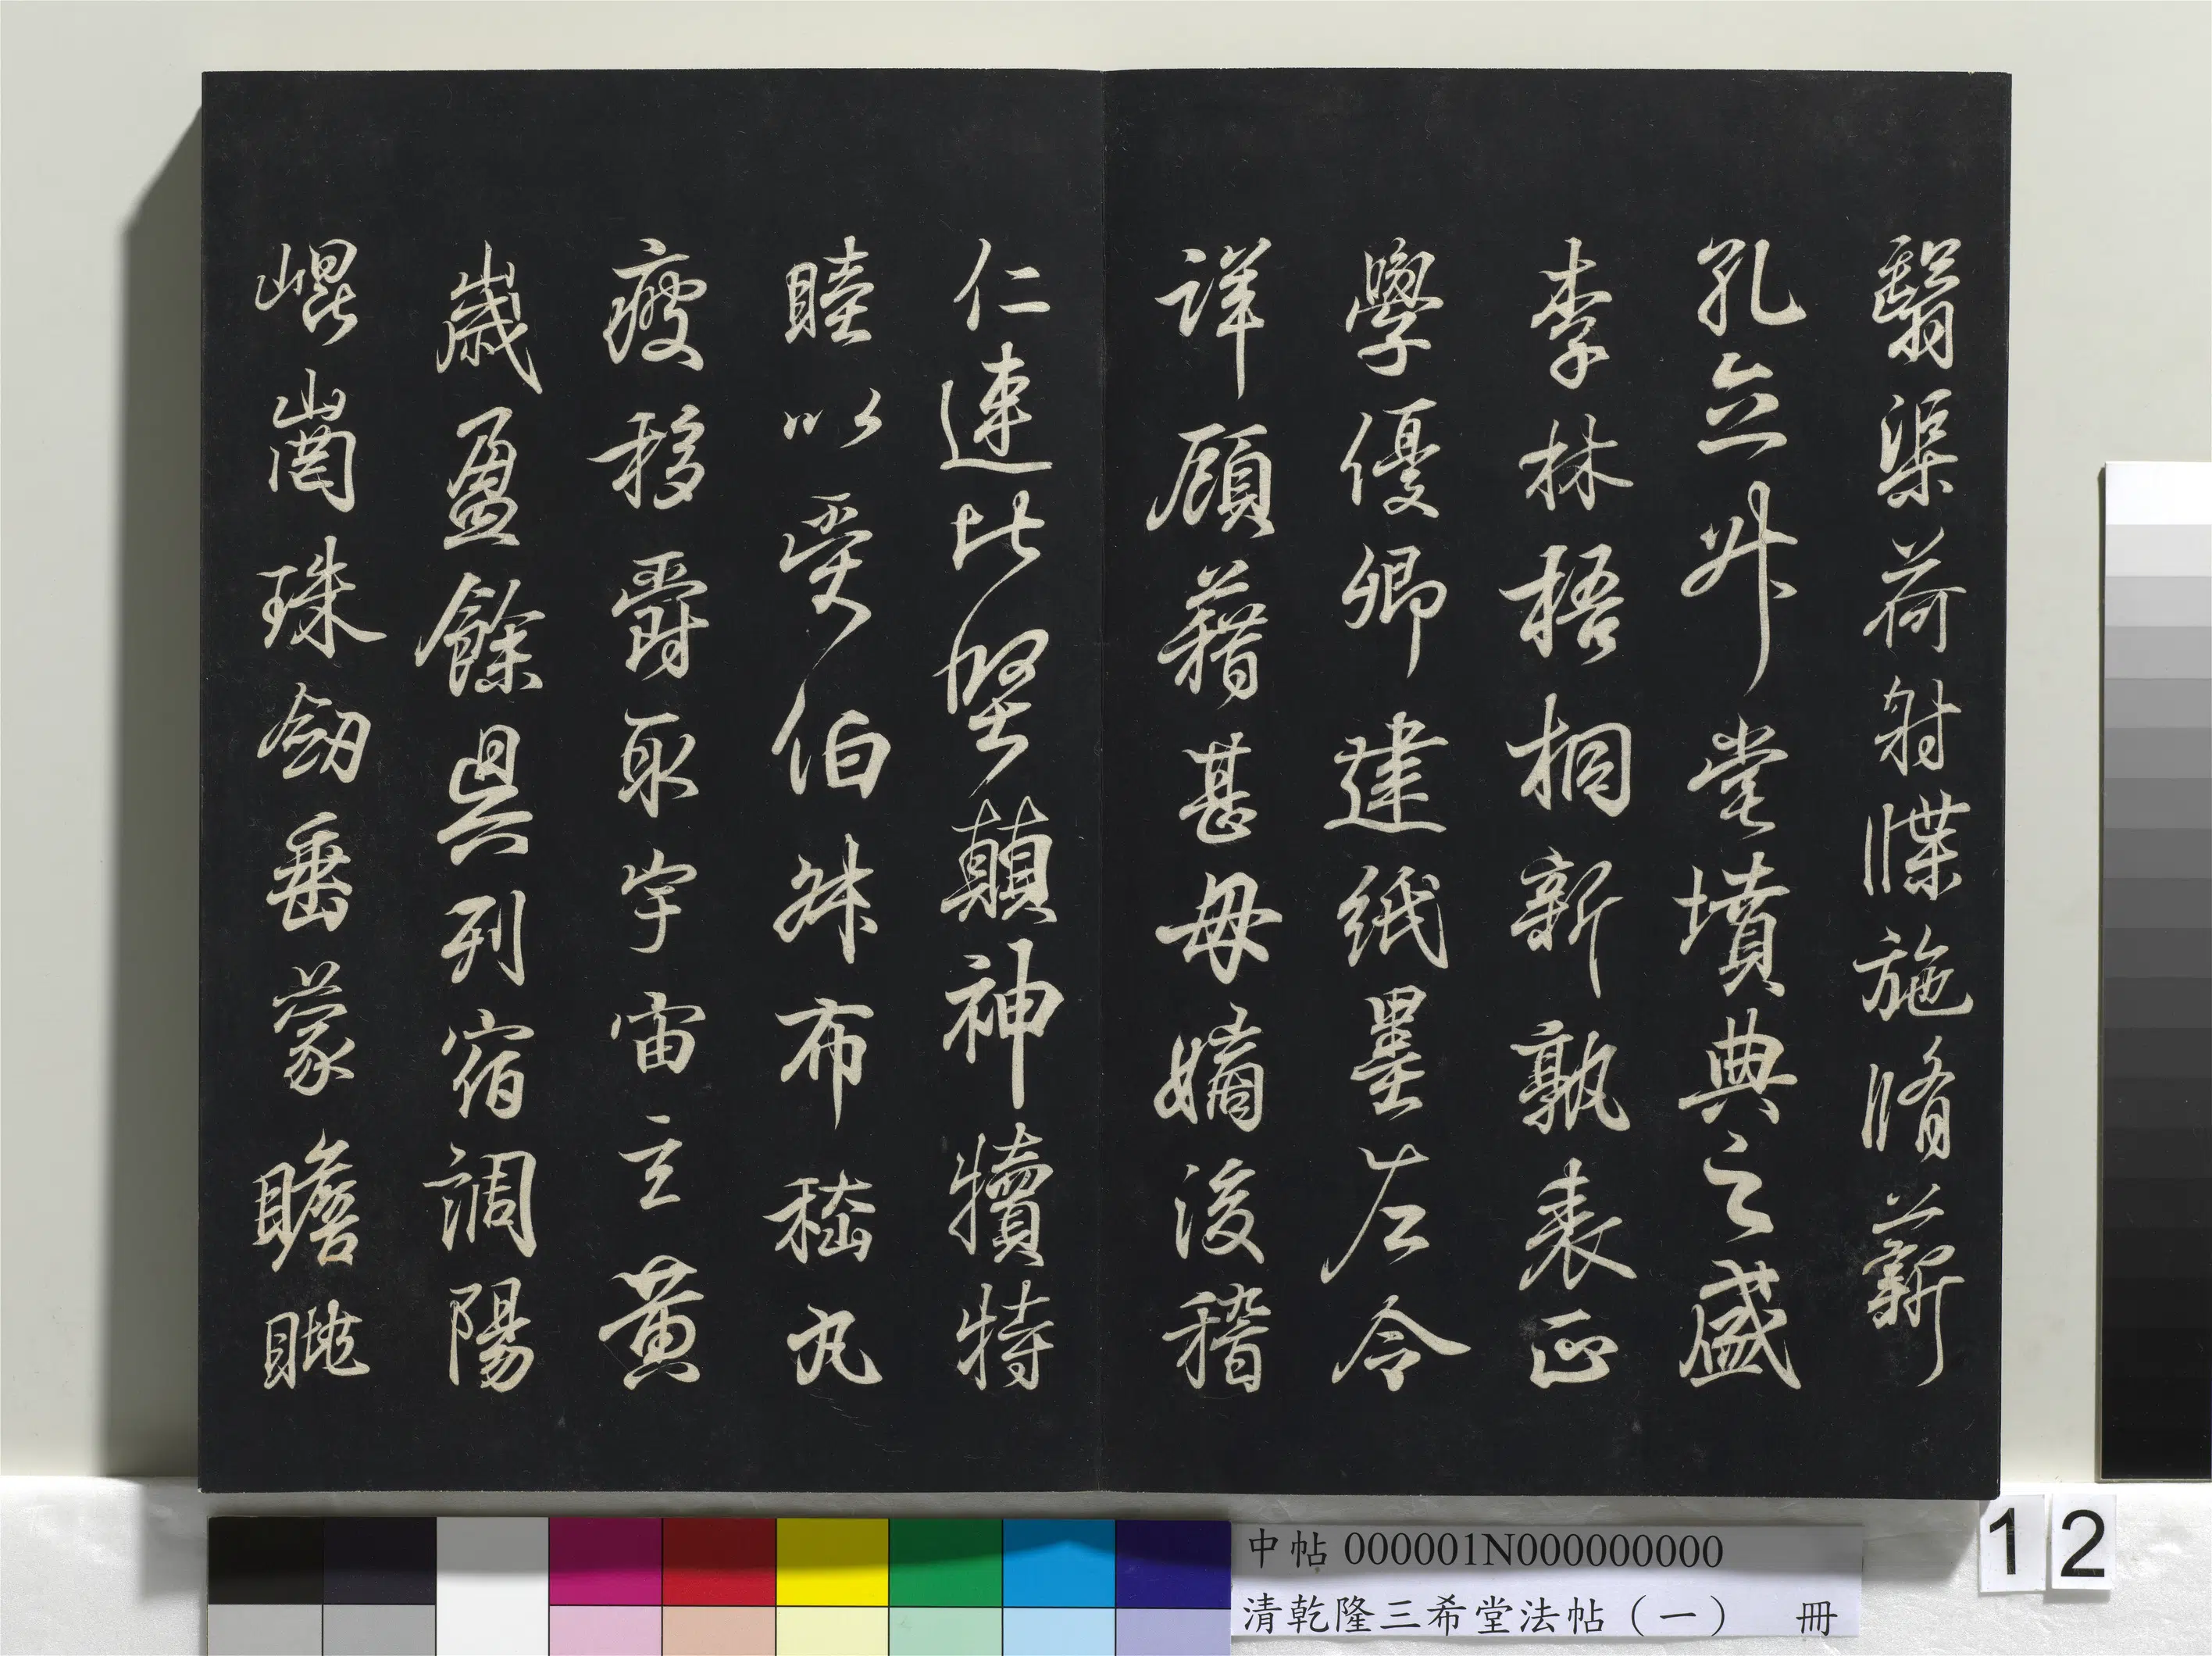 翳渠荷射牒施脩薪
孔立升堂墳典之盛
李林梧桐新孰表正
學優卿建紙墨左令
詳顧藉甚毋嫡後稽
仁連比堅顛神犢特
睦以受伯叔布嵇丸
疲移爵取宇宙玄黃
歲盈餘具列宿調陽
崐崗珠劒垂蒙瞻眺
中帖 000001N000000000
清乾隆三希堂法帖（一） 冊
12